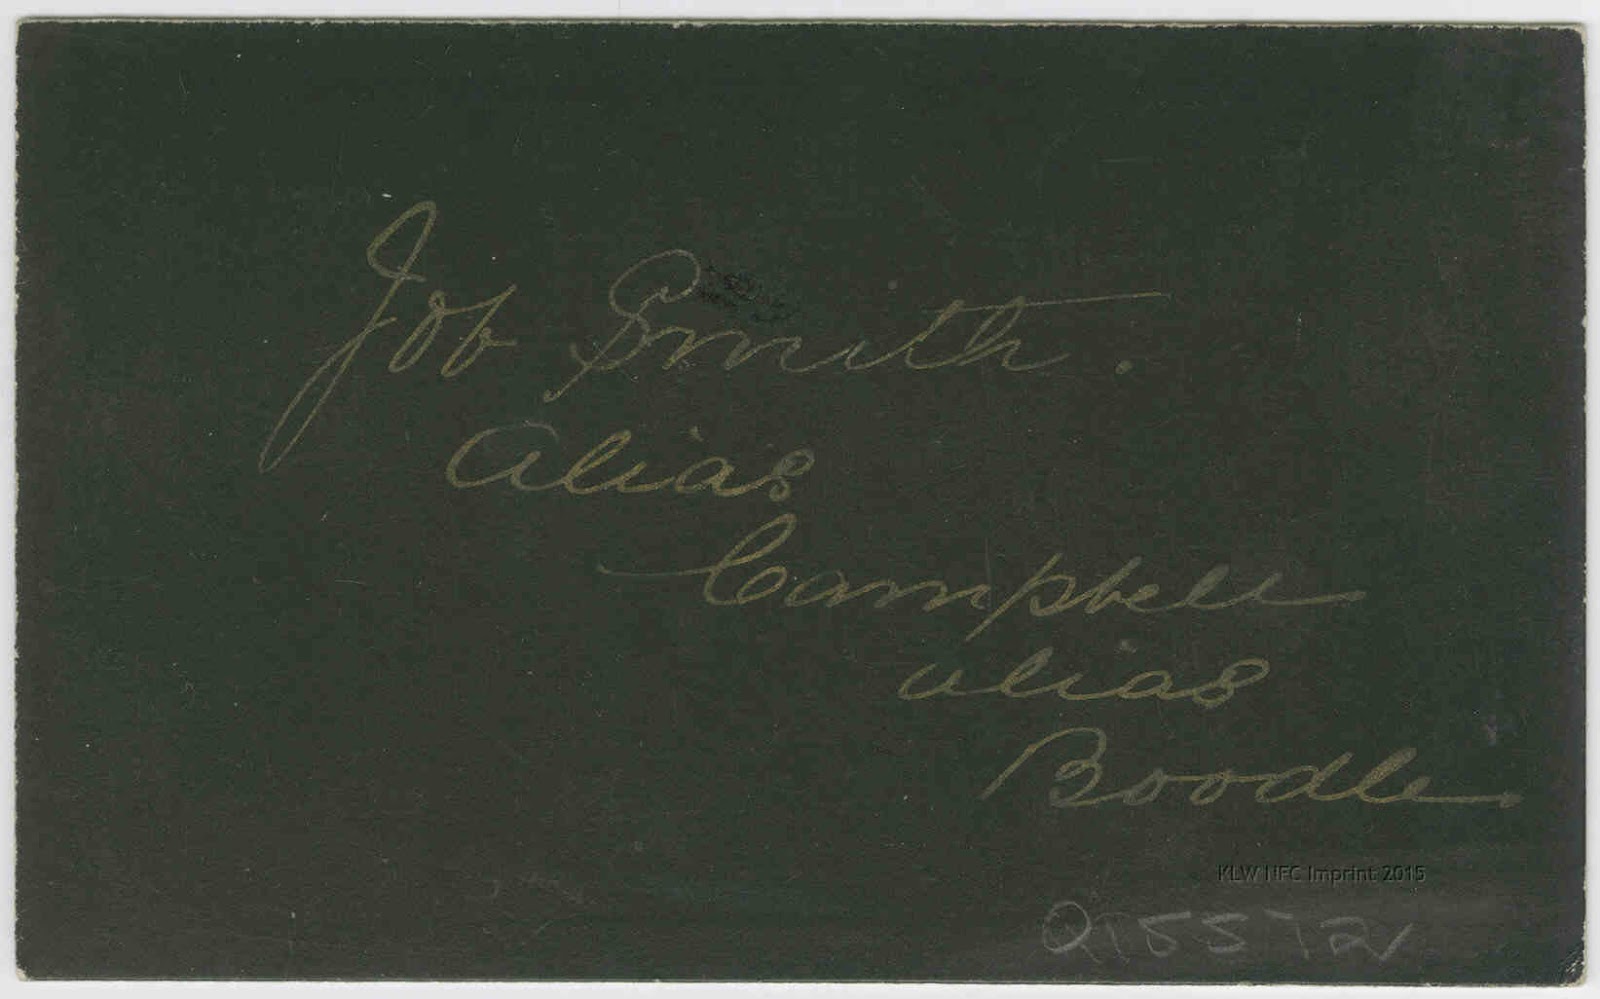 Job Smith.
alias
Campbell
alias
Boodle.
KLW NFC Imprint 2015